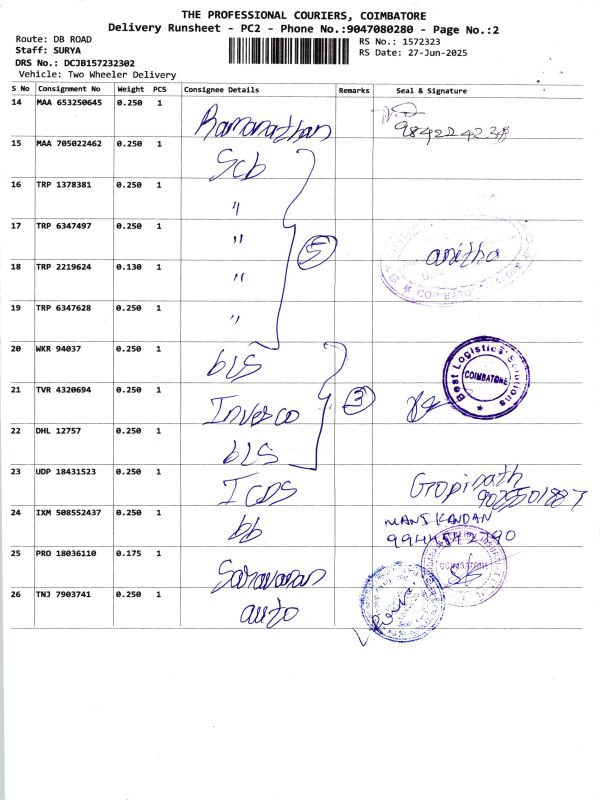 THE PROFESSIONAL COURIERS, COIMBATORE
Delivery Runsheet - PC2 - Phone No.:9047080280 - Page No.:2
Route: DB ROAD
Staff: SURYA
DRS No.: DCJB157232302
Vehicle: Two Wheeler Delivery
RS No.: 1572323
RS Date: 27-Jun-2025
S No Consignment No Weight PCS Consignee Details Remarks Seal & Signature
14 MAA 653250645 0.250 1 Ramanathan 9842242238
15 MAA 705022462 0.250 1 Scb
16 TRP 1378381 0.250 1 "
17 TRP 6347497 0.250 1 " 5 anitha
18 TRP 2219624 0.130 1 "
19 TRP 6347628 0.250 1 "
20 WKR 94037 0.250 1 bLS Best Logistics Solutions COIMBATORE
21 TVR 4320694 0.250 1 Invesco 3
22 DHL 12757 0.250 1 bLS
23 UDP 18431523 0.250 1 ICDS Gopinath
24 IXM 508552437 0.250 1 bb MANIKANDAN
9944542790
25 PRO 18036110 0.175 1 Saravanan COIMBATORE
26 TNJ 7903741 0.250 1 auto